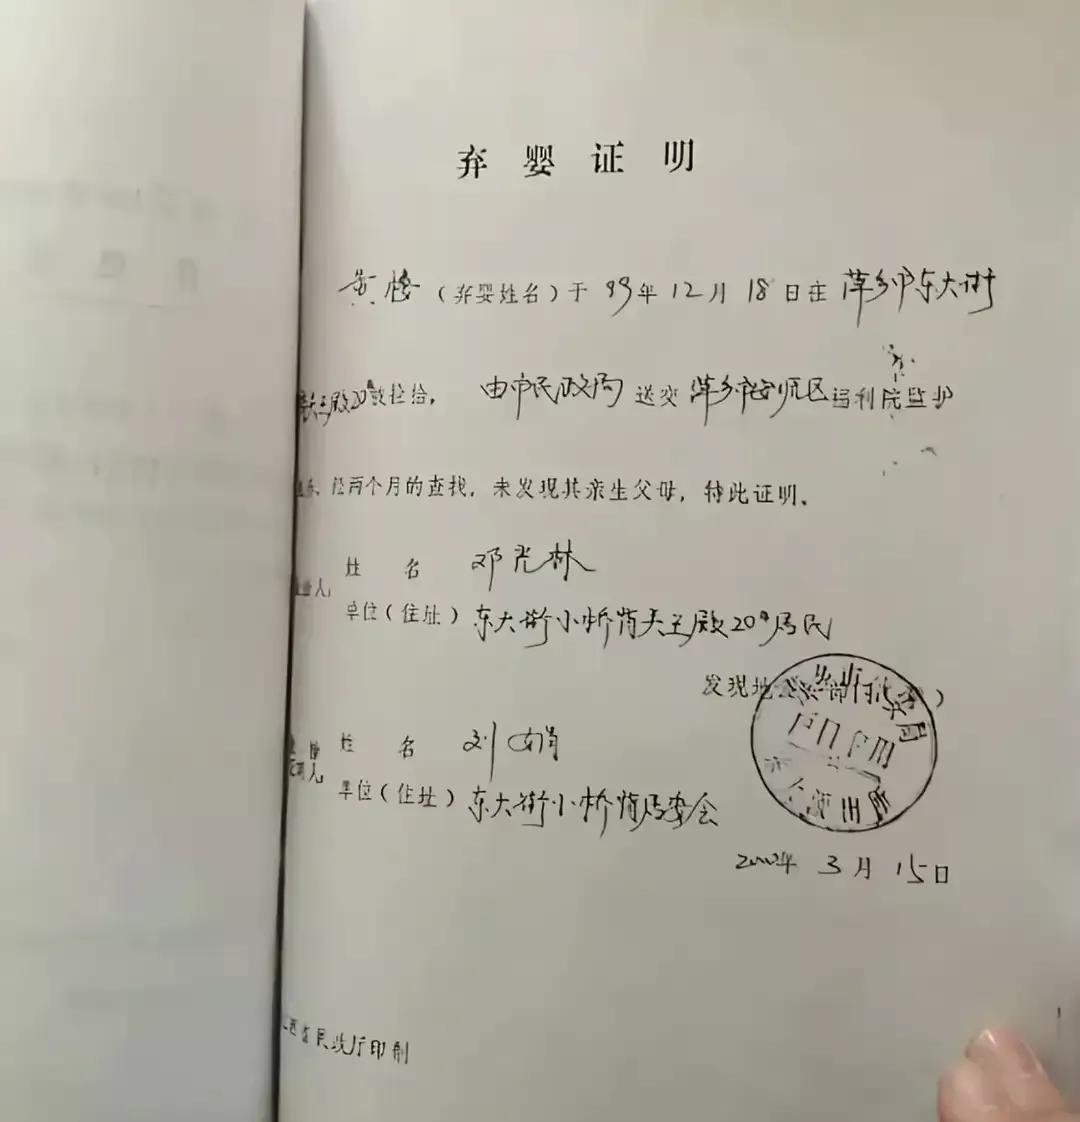 弃婴证明
黄 (弃婴姓名)于 99年12月18日在 萍乡市东大街
天王殿20号被捡拾, 由市民政局 送交 萍乡市安源区福利院监护
经两个月的查找,未发现其亲生父母,特此证明。
姓 名 邓光林
人:
单位(住址) 东大街小桥背天王殿20号居民
发现地公安部门
姓 名 刘娟
证明人
单位(住址) 东大街小桥背居委会
2000年 3月 15日
西省民政厅印制